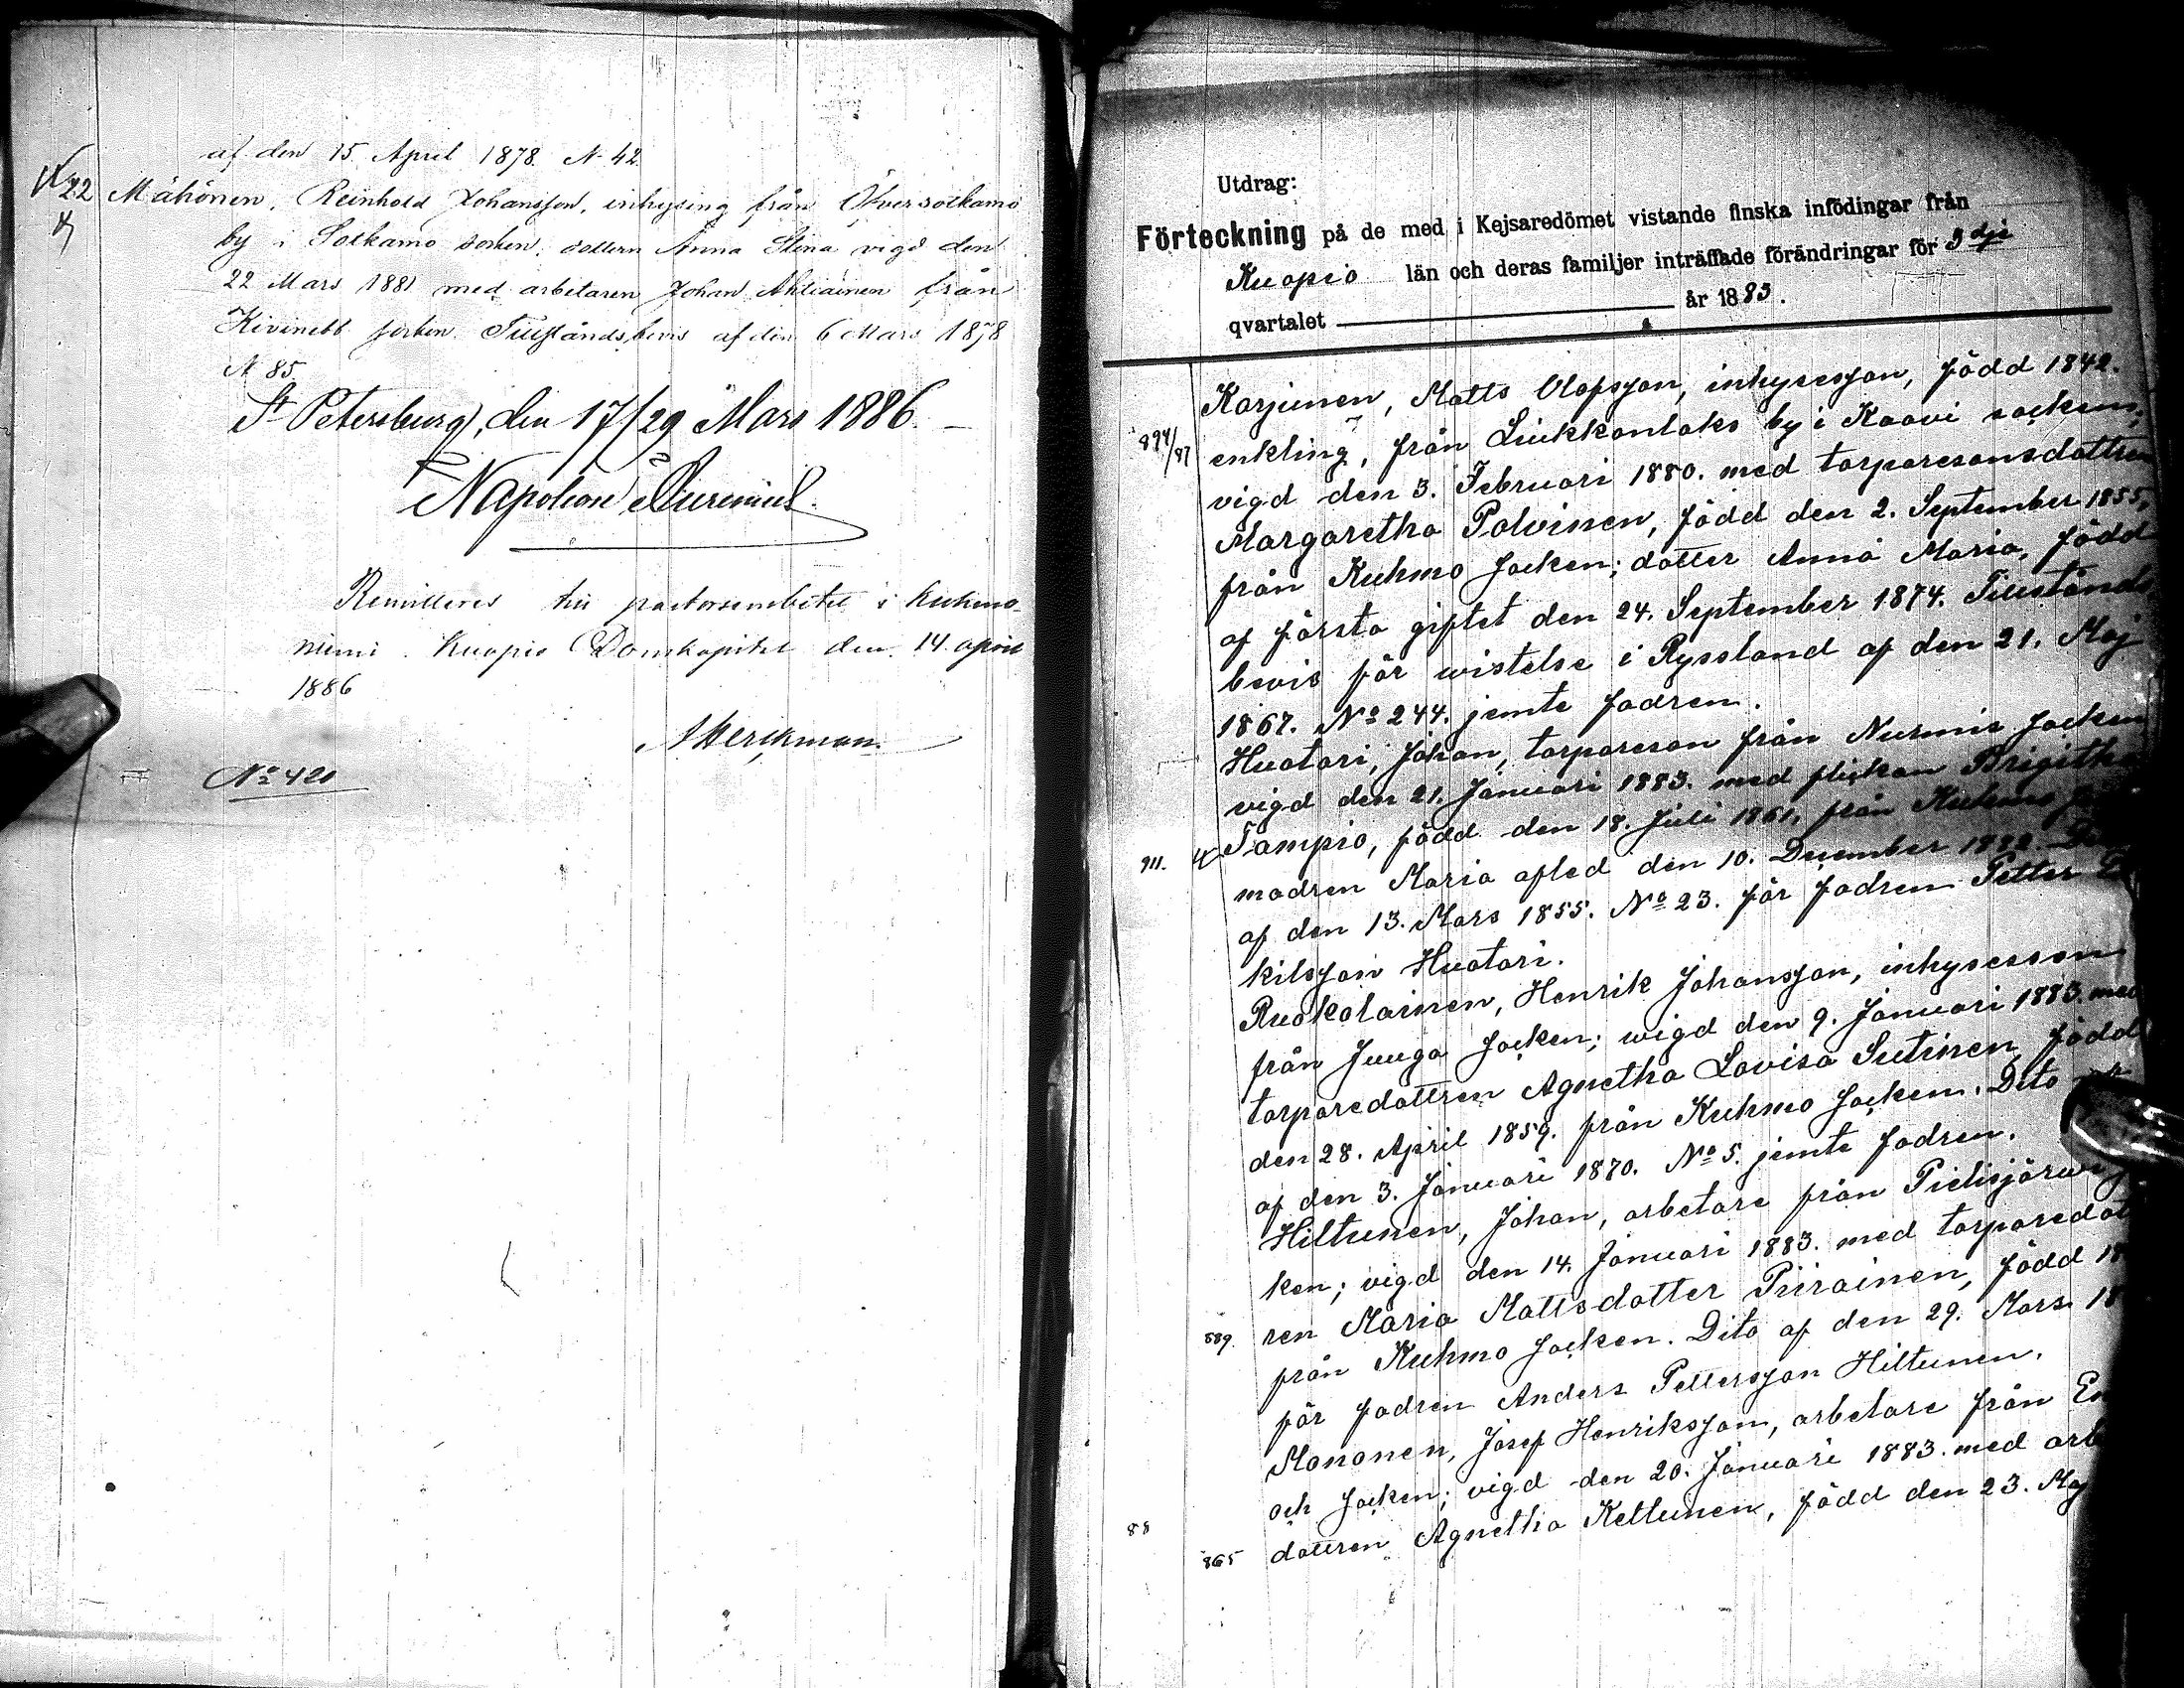 af den 15. April 1878. N. 42
22 Mähönen, Reinhold Johansson, inhysing från Öfversotkamo
by i Sotkamo socken, dottern Anna Stina vigd den
22 Mars 1881 med arbetaren Johan Ahtiainen från
Kivinebb socken. Tillståndsbevis af den 6 Mars 1878
N 85
St Petersburg, den 17/29 Mars 1886.
Napoleon
Remitteres till pastorsembetet i Kuhmo-
niemi. Kuopio Domkapitel den 14 april
1886
No 421
Utdrag:
Förteckning på de med i Kejsaredömet vistande finska infödingar från
Kuopio län och deras familjer inträffade förändringar för 3dje
qvartalet år 1883.
Karjunen, Matts Olofsson, inhysesson, född 1842.
894/87 enkling, från Liukkonlaks by i Kaavi socken;
vigd den 3. Februari 1880. med torparesonsdottren
Margaretha Polvinen, född den 2. September 1855,
från Kuhmo socken; dotter Anna Maria, född
af första giftet den 24. September 1874. Tillstånds
bevis för wistelse i Ryssland af den 21. Maj
1867. No 244. jemte fadren.
Huotari, Johan, torpareson från Nurmis socken
vigd den 21. Januari 1883. med flickan Brigitha
911. Tampio, född den 18. Juli 1861, från Kuhmo
modren Maria afled den 10. December 1882.
af den 13. Mars 1855. No 23. för fadren Petter
kilsson Huotari.
Ruokolainen, Henrik Johansson, inhysesson
från Juuga socken; wigd den 9. Januari 1883. med
torparedottren Agnetha Lovisa Sutinen, född
den 28. April 1859. från Kuhmo socken. Dito
af den 3. Januari 1870. No 5. jemte fadren.
Hiltunen, Johan, arbetare från Pielisjärvi
ken; vigd den 14. Januari 1883. med torparedot
889. ren Maria Mattsdotter Piirainen, född 18
från Kuhmo socken. Dito af den 29. Mars 18
för fadren Anders Pettersson Hiltunen.
Mononen, Josef Henriksson, arbetare från En
och socken; vigd den 20. Januari 1883. med arb
88 865 dottren Agnetha Kettunen, född den 23. Maj